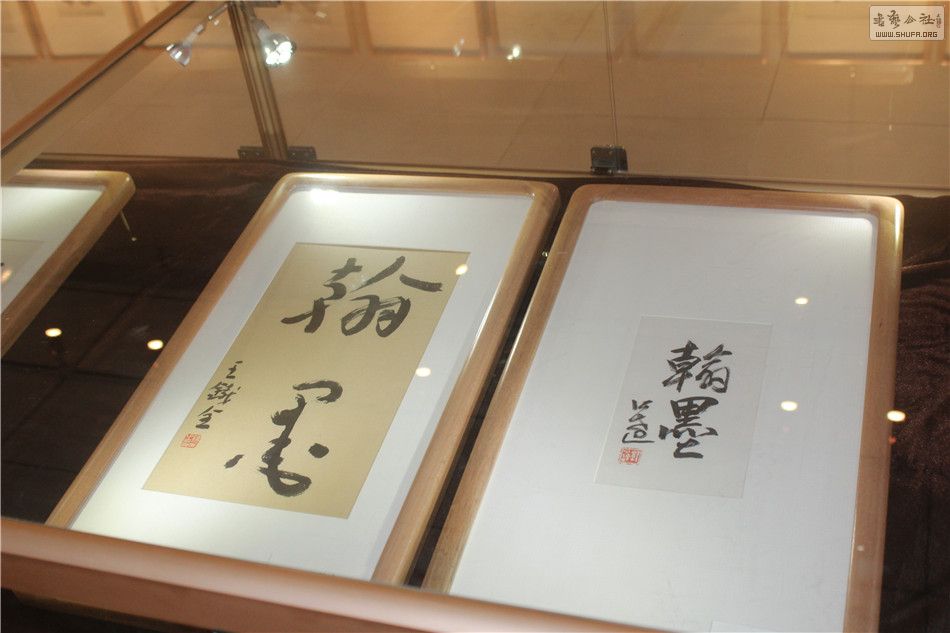 書藝公社
WWW.SHUFA.ORG
翰
墨
王鐵全
翰
墨